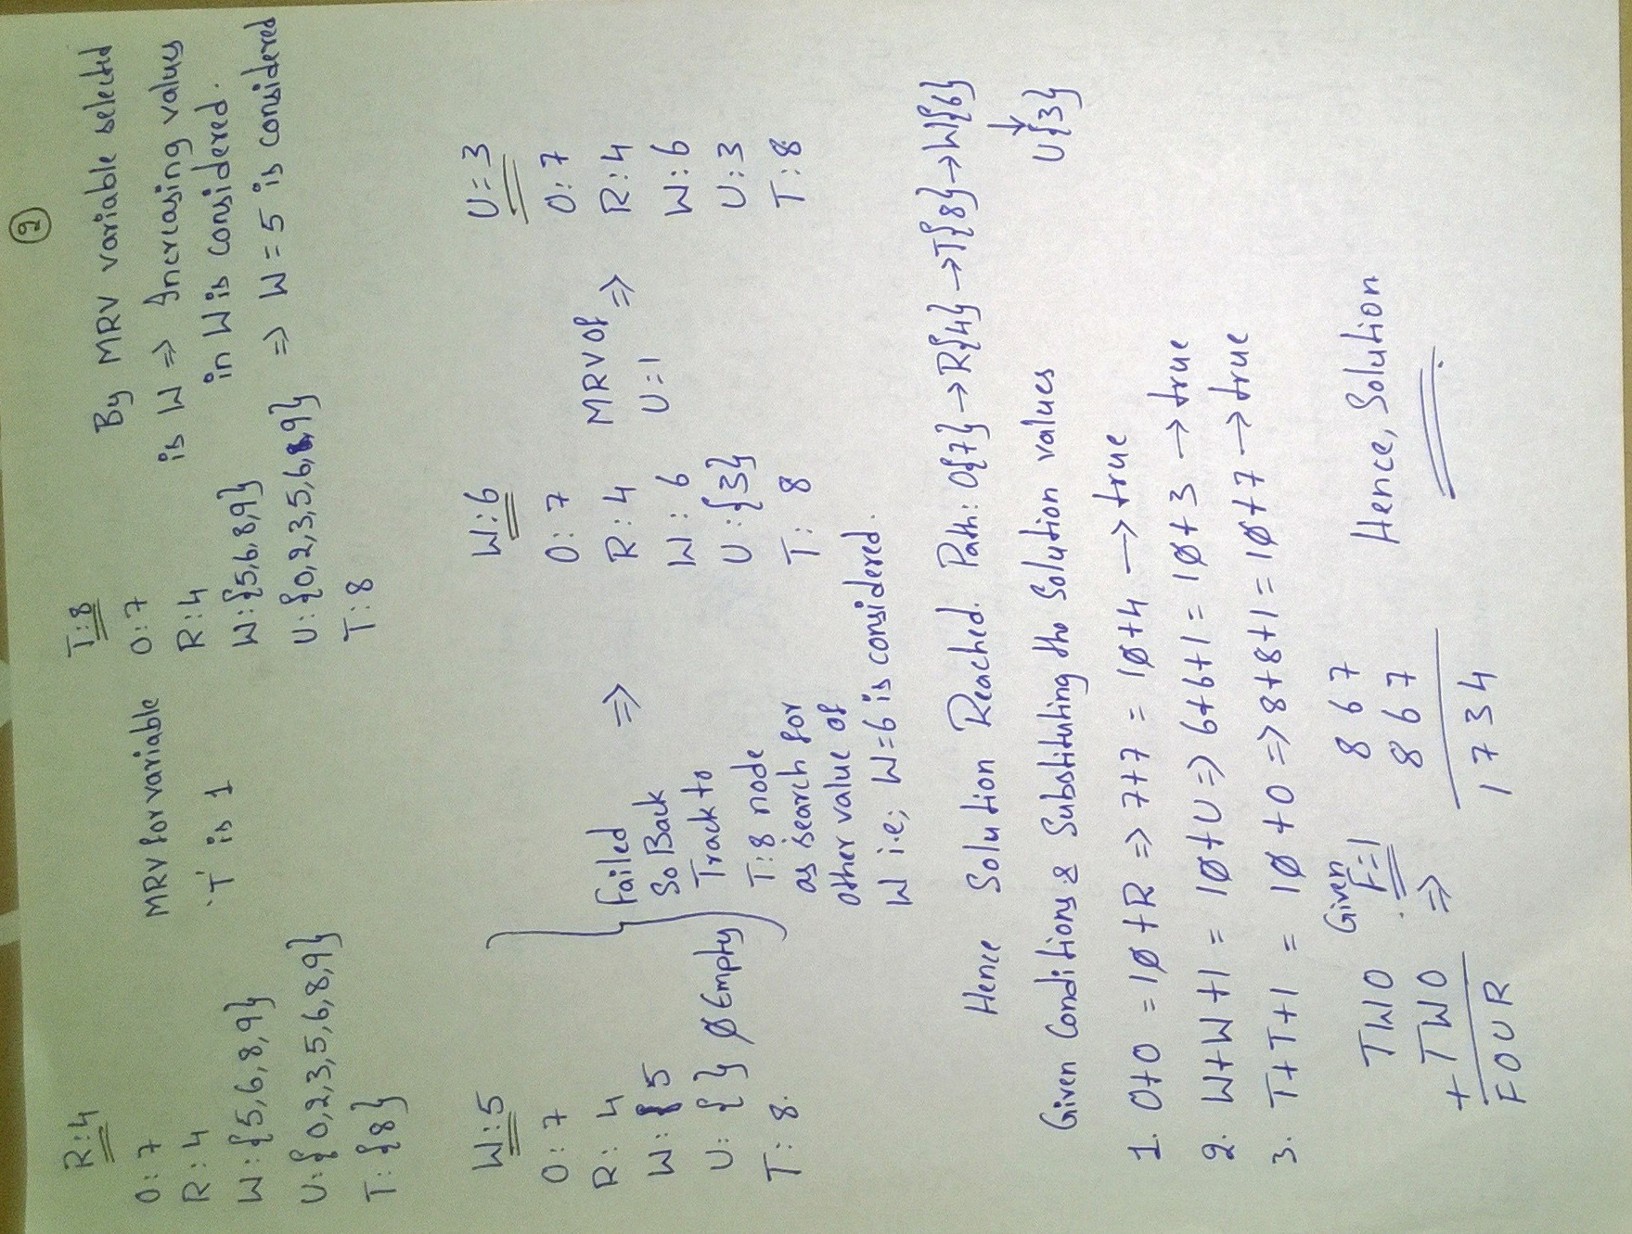 2
R:4
O: 7
R: 4
W: {5,6,8,9}
U: {0,2,3,5,6,8,9}
T: {8}
MRV for variable
'T' is 1
T:8
O: 7
R: 4
W: {5,6,8,9}
U: {0,2,3,5,6,9}
T: 8
By MRV variable selected
is W ⇒ Increasing values
in W is considered.
⇒ W = 5 is considered
W:5
O: 7
R: 4
W: 5
U: { } Ø Empty
T: 8.
Failed
So Back
Track to
T:8 node
as search for
other value of
W i.e; W=6 is considered.
⇒
W:6
O: 7
R: 4
W: 6
U: {3}
T: 8
MRV of
U=1
⇒
U=3
O: 7
R: 4
W: 6
U: 3
T: 8
Hence Solution Reached. Path: O{7} → R{4} → T{8} → W{6}
↓
U{3}
Given Conditions & Substituting the Solution values
1. O+O = 10 + R ⇒ 7+7 = 10+4 → true
2. W+W+1 = 10+U ⇒ 6+6+1 = 10+3 → true
3. T+T+1 = 10+O ⇒ 8+8+1 = 10+7 → true
TWO
+ TWO
FOUR
Given
F=1
⇒
867
867
1734
Hence, Solution